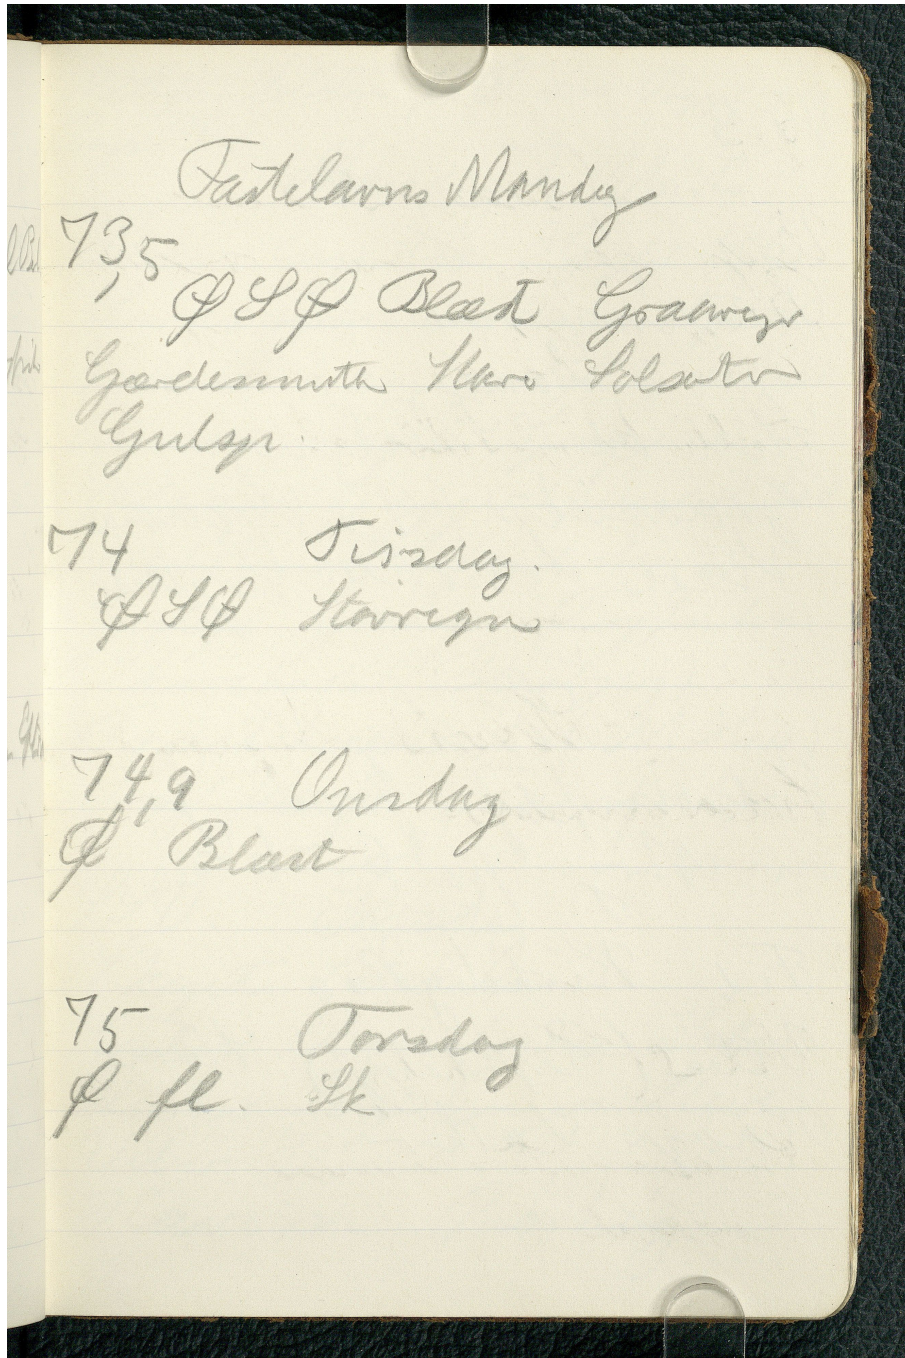 Fastelavns Mandag
73,5
Ø S Ø Blæst Graaveyr
Gærdesmutte Stær Solsorter
Gulsp.
74 Tirsdag.
Ø S Ø Støvregn
74,9 Onsdag
Ø Blæst
75 Torsdag
Ø fl. Sk